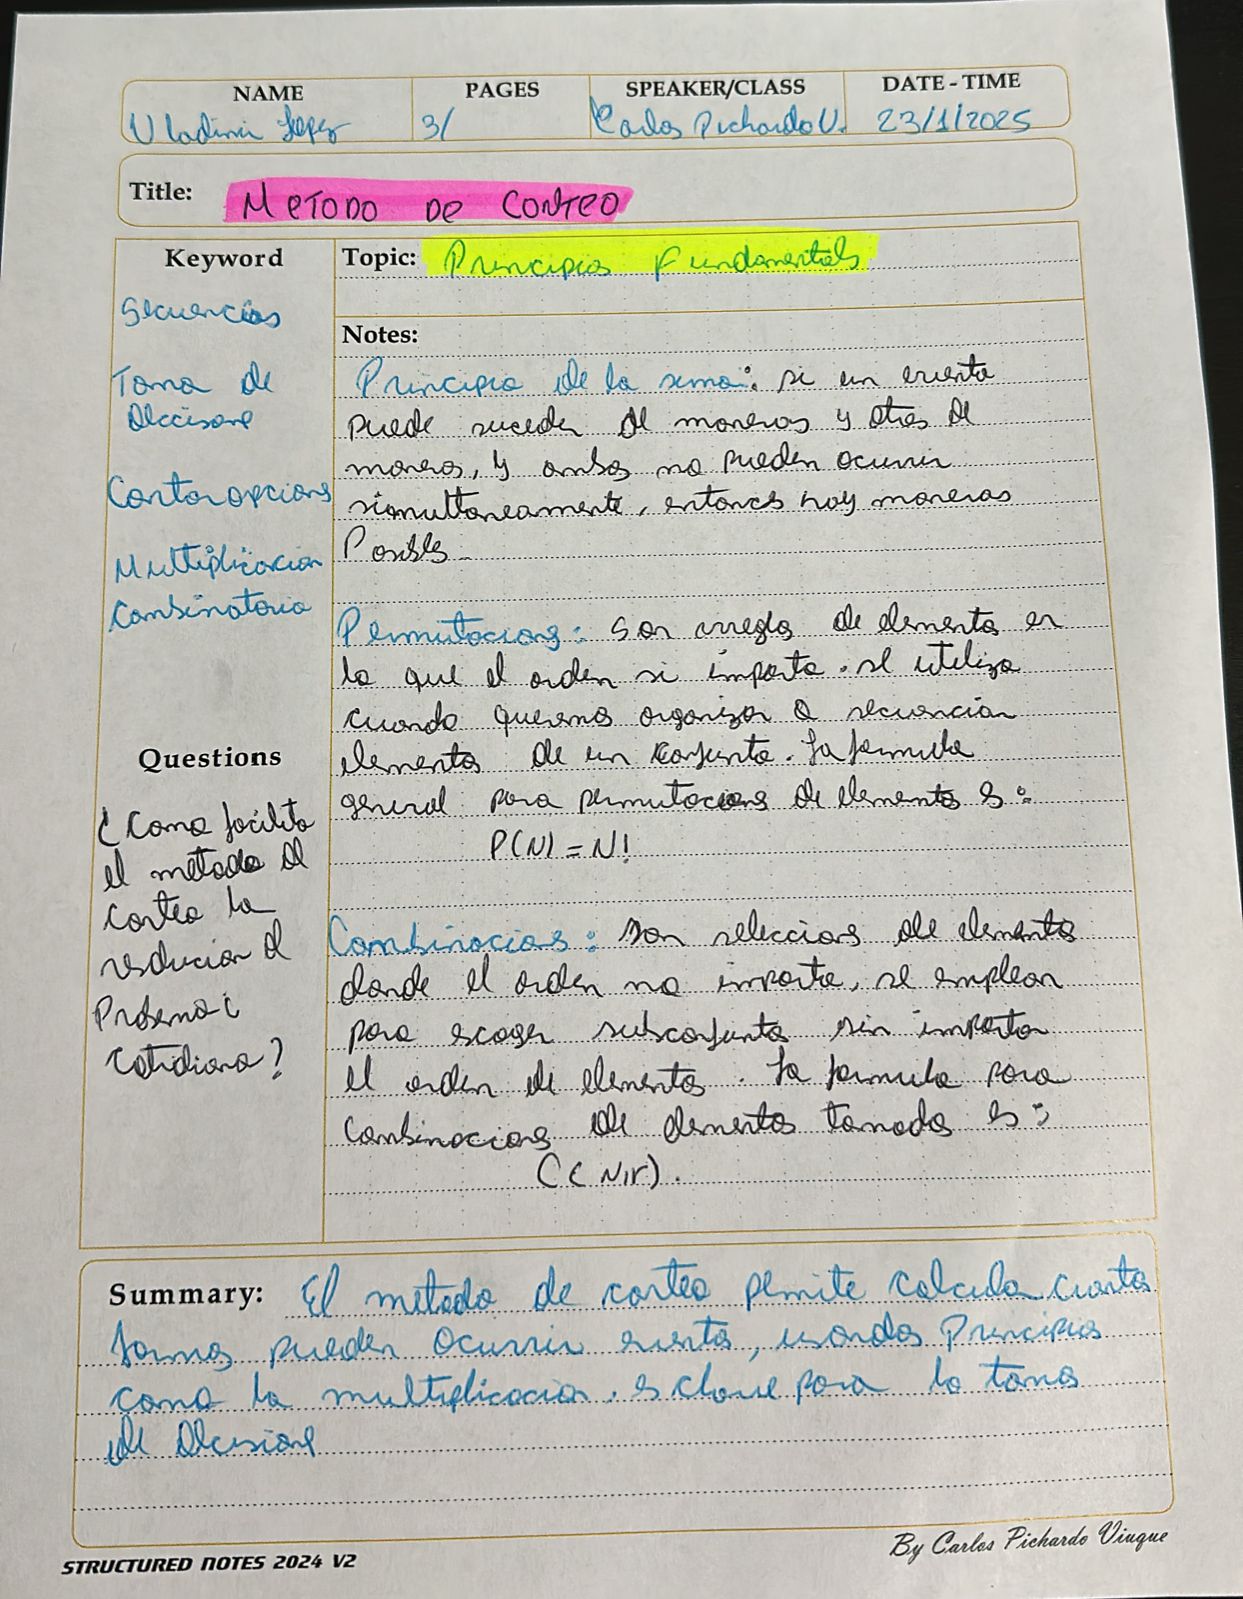 NAME
PAGES
SPEAKER/CLASS
DATE - TIME
Vladimir Lopez
3/
Carlos Pichardo V.
23/1/2025
Title: METODO DE CONTEO
Keyword
Secuencias
Toma de
Decisione
Contar opcions
Multiplicacion
Combinatoria
Questions
¿Como facilita
el metodo de
conteo la
resolucion d
Problema
cotidiano?
Topic: Principios Fundamentals
Notes:
Principio de la suma: si un evento
puede suceder de maneras y otros de
maneras, y ambos no pueden ocurrir
simultaneamente, entonces hay maneras
Posibls
Permutacions: Son arreglos de elementos en
lo que el orden si importa. se utiliza
cuando queremos organizar o secuenciar
elementos de un conjunto. La formula
general para permutacions de elementos es:
P(N) = N!
Combinacions: son seleccions de elementos
donde el orden no importa, se emplean
para escoger subconjuntos sin importar
el orden de elementos. La formula para
combinacions de elementos tomados es:
C(N,r).
Summary: El metodo de conteo permite calcula cuantas
formas pueden ocurrir eventos, usando Principios
como la multiplicacion. es clave para la toma
de Decisione
STRUCTURED NOTES 2024 V2
By Carlos Pichardo Viuque